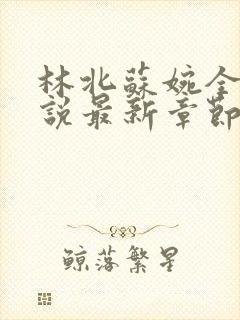 林北蘇婉全
說最新章節
鲸落繁星